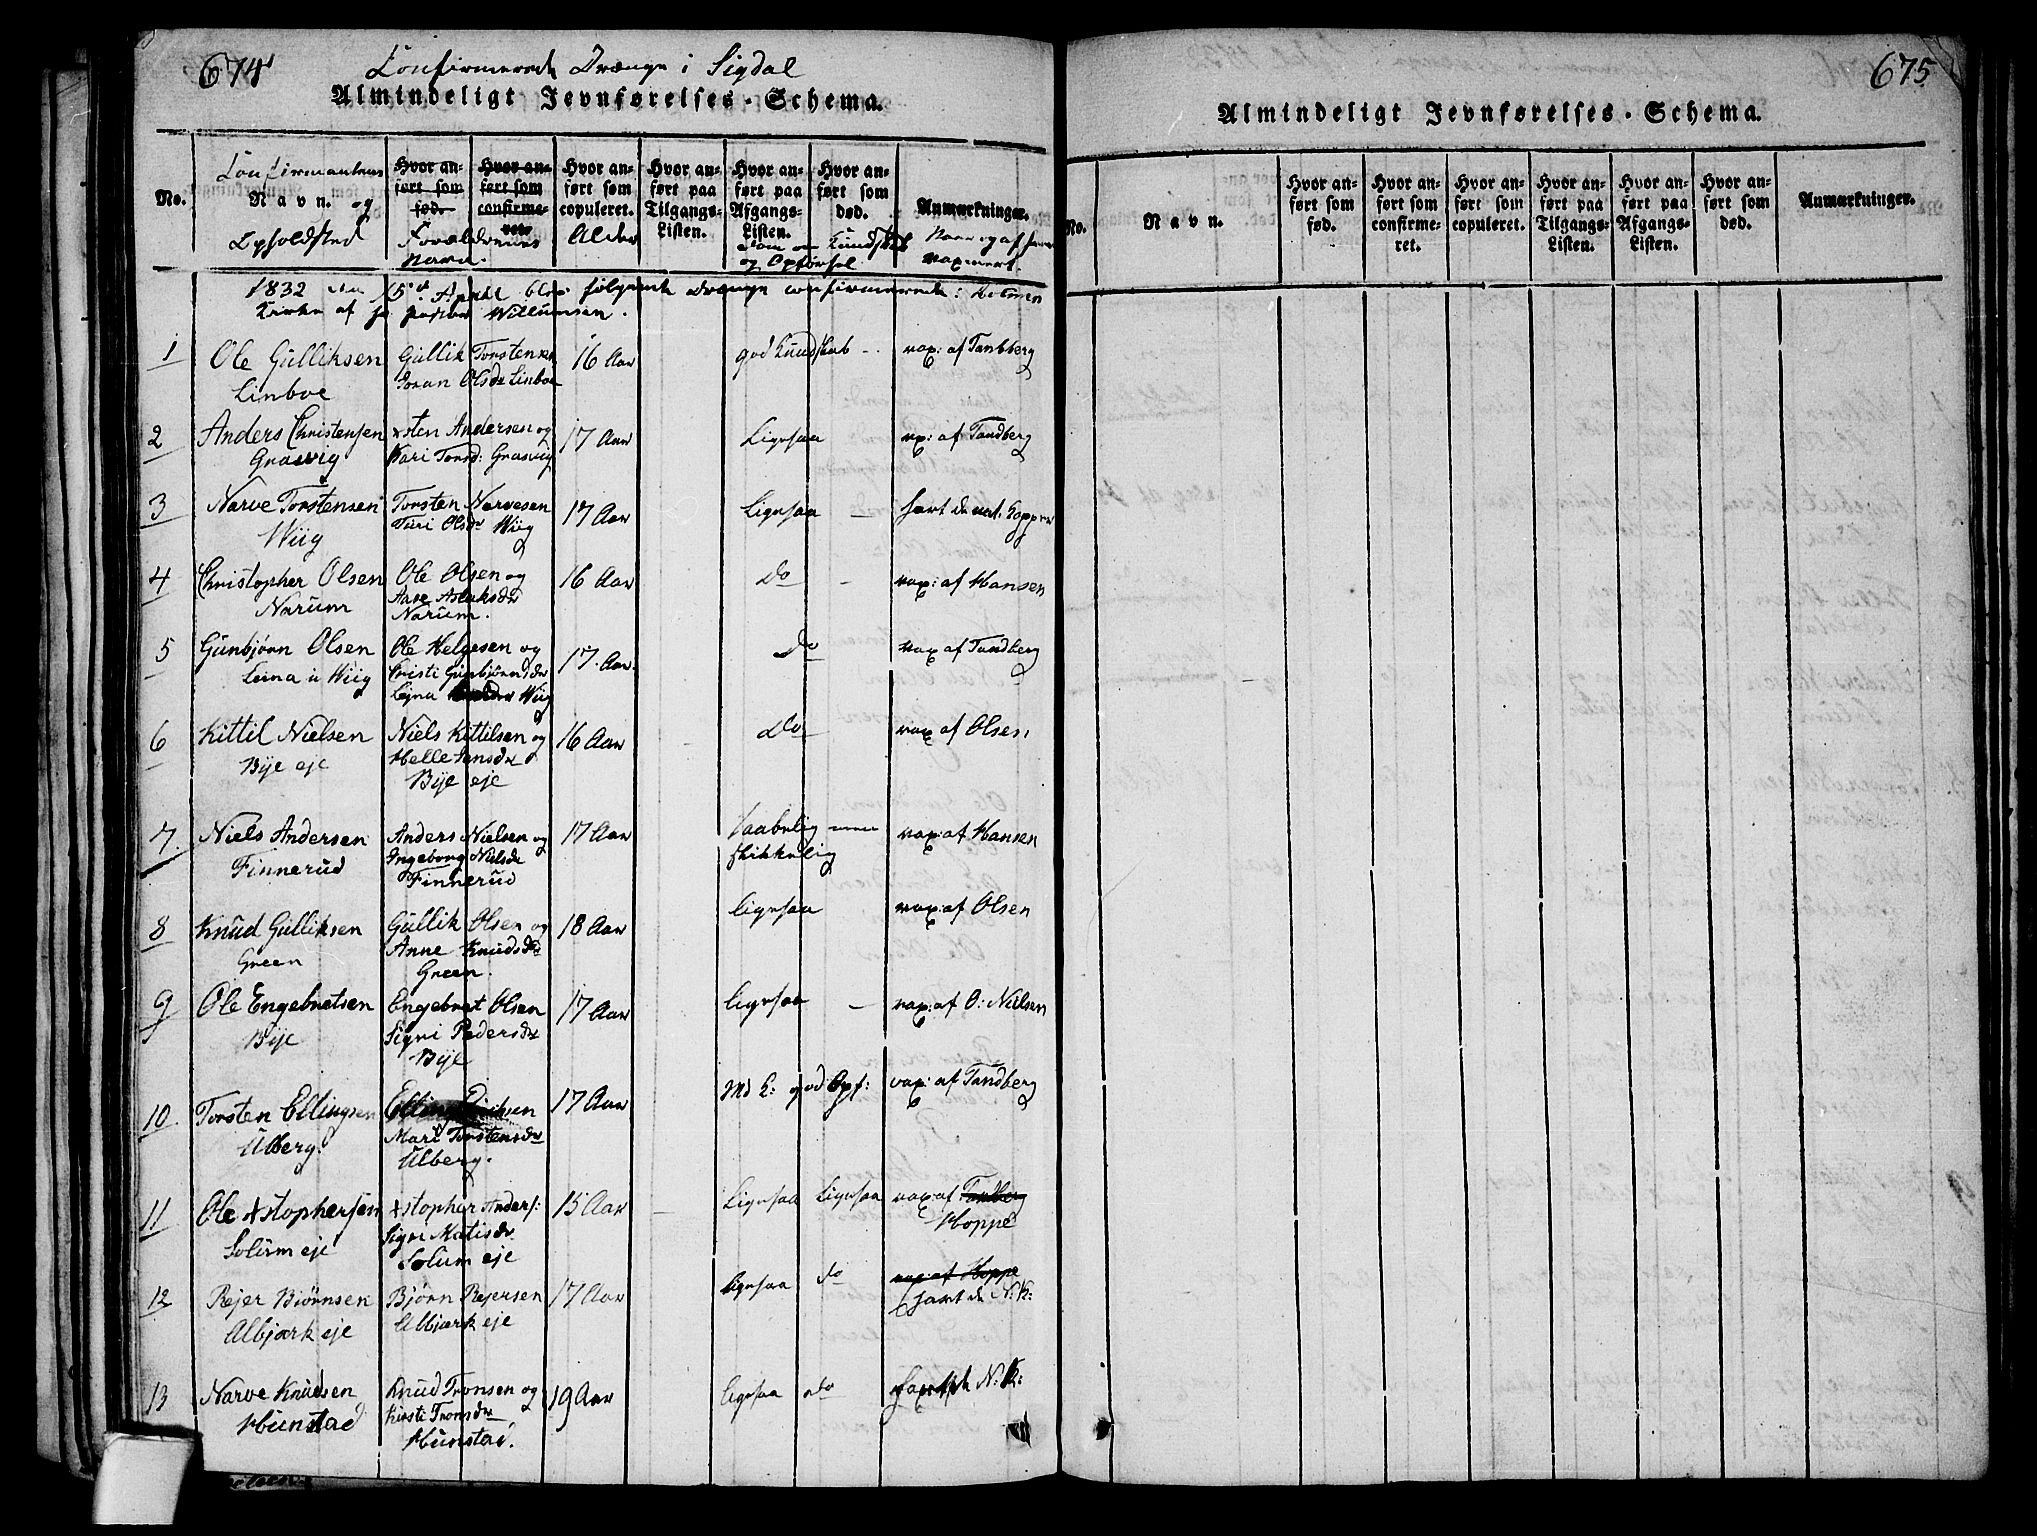 674
Confirmerede Drænge i Sigdal
Almindeligt Jevnførelses-Schema.
No.
Confirmantens Navn. og Opholdsted
Hvor anført som fød. Forældrenes Navn.
Hvor anført som confirmeret.
Hvor anført som copuleret. Alder
Hvor anført paa Tilgangs-Listen.
Hvor anført paa Afgangs-Listen. Dom om Kundskab og Opførsel
Hvor anført som død.
Anmærkninger. Naar og af hvem vaxineret.
1832 den 15de April blev følgende Drænge confirmerede i Holmen
Kirke af hr pastor Willumsen.
1 Ole Gulliksen Gullik Torstensen 16 Aar god Kundskab - vax: af Tandberg
Linboe Joran Olsdr Linboe
2 Anders Christensen Xsten Andersen og 17 Aar Ligesaa vax: af Tandberg
Grasvig Kari Torsd: Grasvig
3 Narve Torstensen Torsten Narvesen 17 Aar Ligesaa - havt de nat. Kopper
Wiig Turi Olsdr Wiig
4 Christopher Olsen Ole Olsen og 16 Aar Do - vax: af Hansen
Narum Aase Aslaksdr
Narum.
5 Gunbjørn Olsen Ole Helgesen og 17. Aar. Do vax af Tandberg
Leina u Wiig Cristi Gunbjørnsdr
Lejna Wiig
6 Kittil Nielsen Niels Kittilsen og 16 Aar Do vax af Olsen
Bye eje Helle Jensdr
Bye eje
7. Niels Andersen Anders Nielsen og 17 Aar vax: af Hansen
Finnerud Ingeborg Nielsdr skikkelig
Finnerud
8 Knud Gulliksen Gullik Olsen og 18 Aar ligesaa vax: af Olsen
Green Anne Knudsdr
Green.
9 Ole Engebretsen Engebret Olsen 17 Aar ligesaa - vax: af O: Nielsen
Bye Sigri Pedersdr
Bye
10. Torsten Ellingsen Elling Eriksen 17 Aar Md K: god Opf: vax: af Tandberg
Ulberg. Mari Torstensdr
Ulberg.
11 Ole Xstophersen Xstopher Anders: 15 Aar Ligesaa Ligesaa vax: af Tandberg
Solum eje Signe Matisdr Hoppe
Solum eje
12 Rejer Biørnsen Bjørn Rejersen 17 Aar ligesaa do vax: af Hoppe
Albjærk eje Albjærk eje havt de N: K:
13 Narve Knudsen Knud Tronsen og 19 Aar ligesaa do havt de N: K:
Hunstad Kirsti Tronsdr
Hunstad.
675
Almindeligt Jevnførelses-Schema.
No.
Navn.
Hvor anført som fød.
Hvor anført som confirmeret.
Hvor anført som copuleret.
Hvor anført paa Tilgangs-Listen.
Hvor anført paa Afgangs-Listen.
Hvor anført som død.
Anmærkninger.